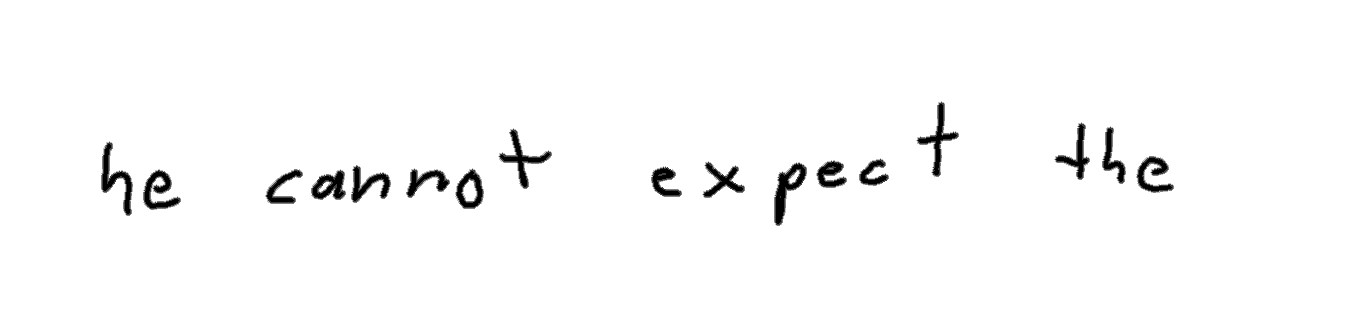 he cannot expect the